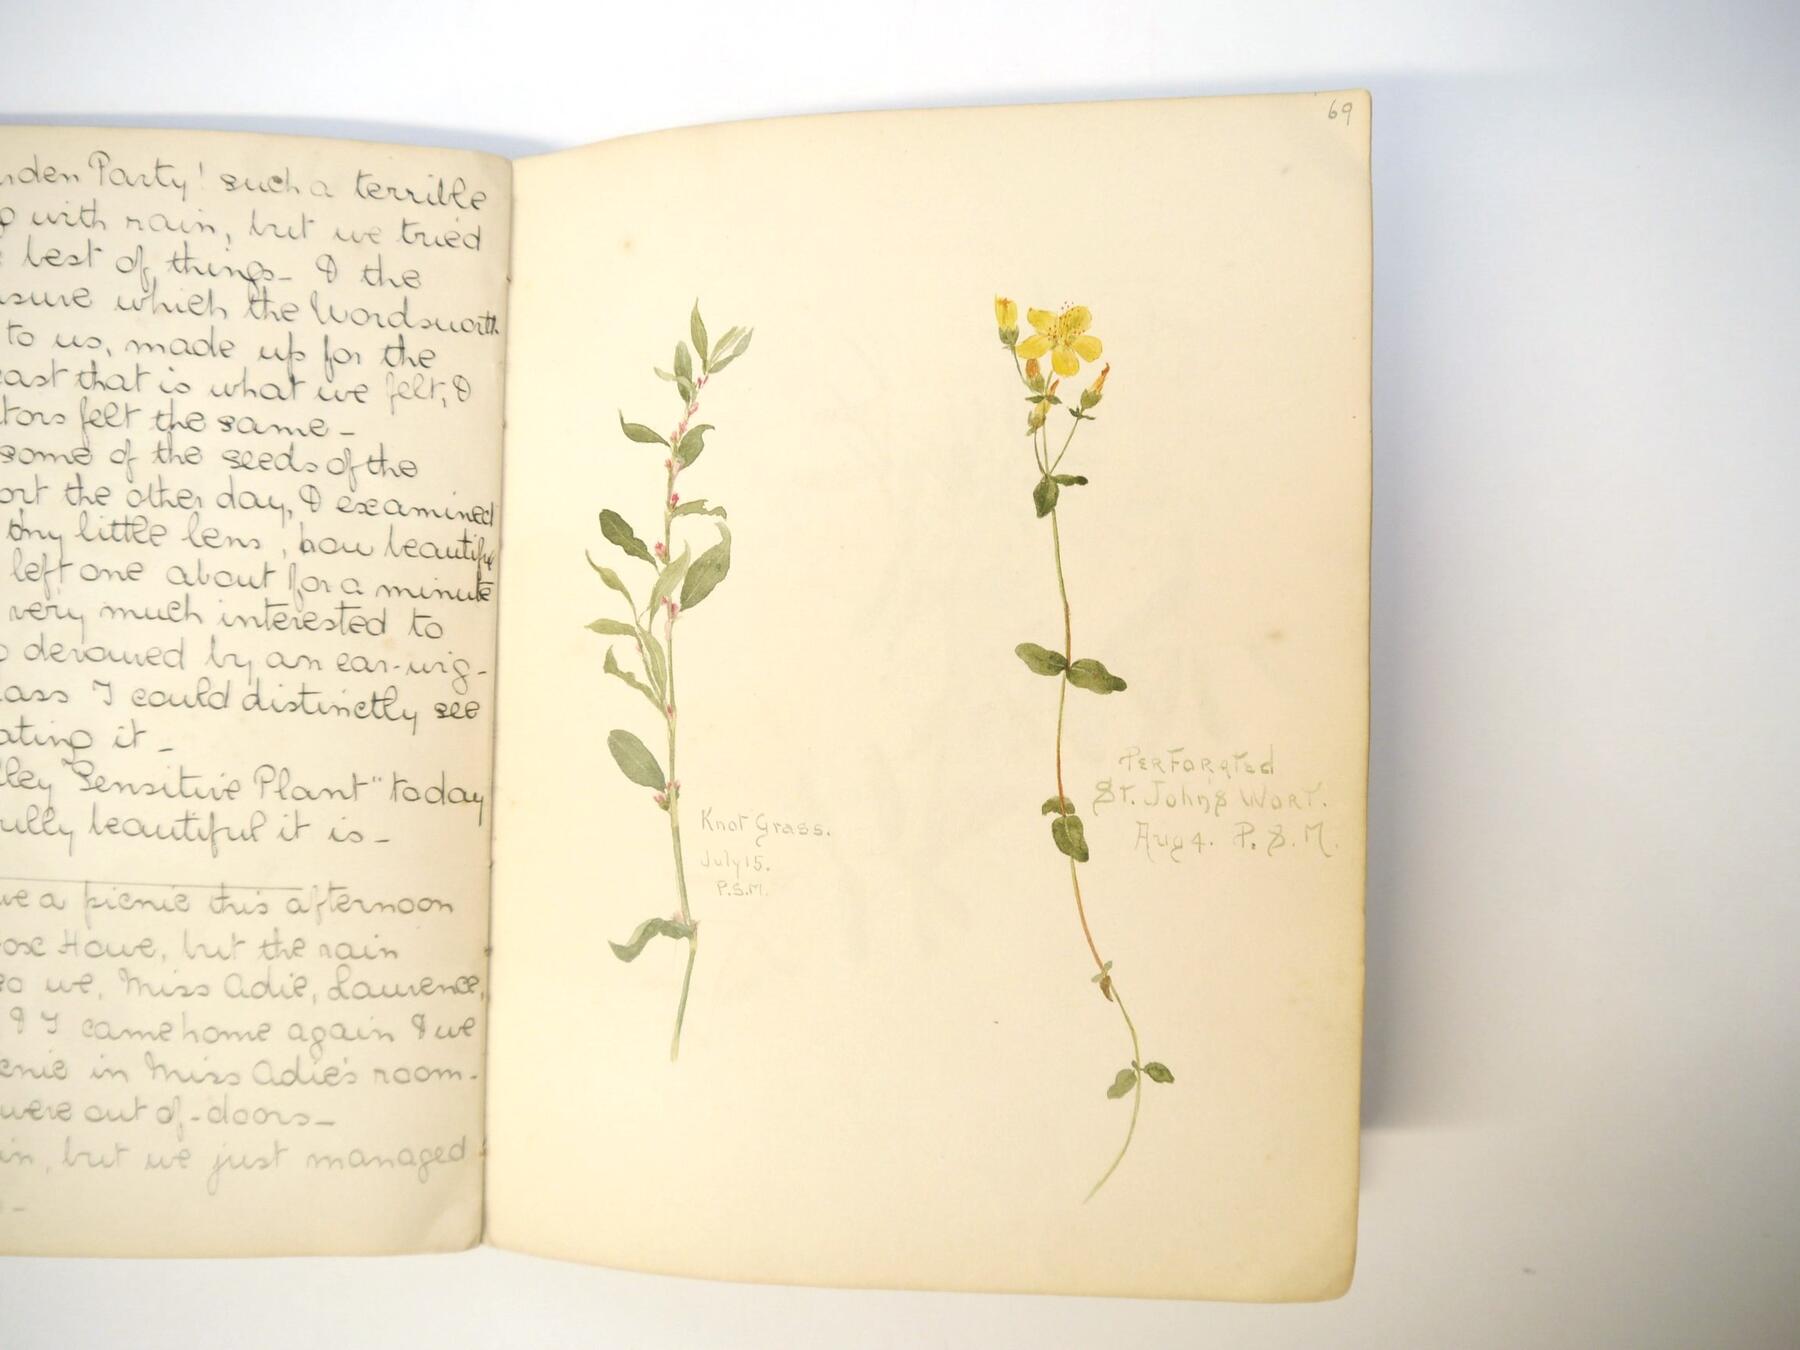 rden Party! such a terrible
with rain, but we tried
best of things - & the
sure which the Wordsworth
to us, made up for the
east that is what we felt, &
tors felt the same -
some of the seeds of the
ort the other day, & examined
my little lens, how beautiful
left one about for a minute
very much interested to
devoured by an ear-wig -
lass I could distinctly see
ating it -
lley "Sensitive Plant" today
ully beautiful it is -
ve a picnic this afternoon
ox Howe, but the rain
so we, Miss Adie, Laurence,
& I came home again & we
cnic in Miss Adie's room -
were out of-doors -
in, but we just managed
69
Knot Grass.
July 15.
P.S.M.
Perforated
St. John's Wort.
Aug 4. P.S.M.